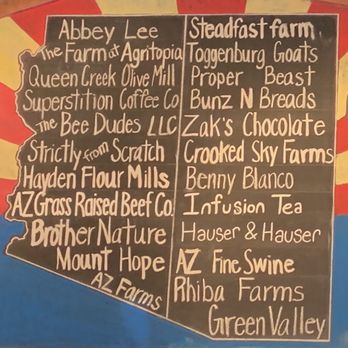 Abbey Lee
The Farm at Agritopia
Queen Creek Olive Mill
Superstition Coffee Co
The Bee Dudes LLC
Strictly from Scratch
Hayden Flour Mills
AZ Grass Raised Beef Co.
Brother Nature
Mount Hope
AZ Farms
Steadfast farm
Toggenburg Goats
Proper Beast
Bunz N Breads
Zak's Chocolate
Crooked Sky Farms
Benny Blanco
Infusion Tea
Hauser & Hauser
AZ Fine Swine
Rhiba Farms
Green Valley